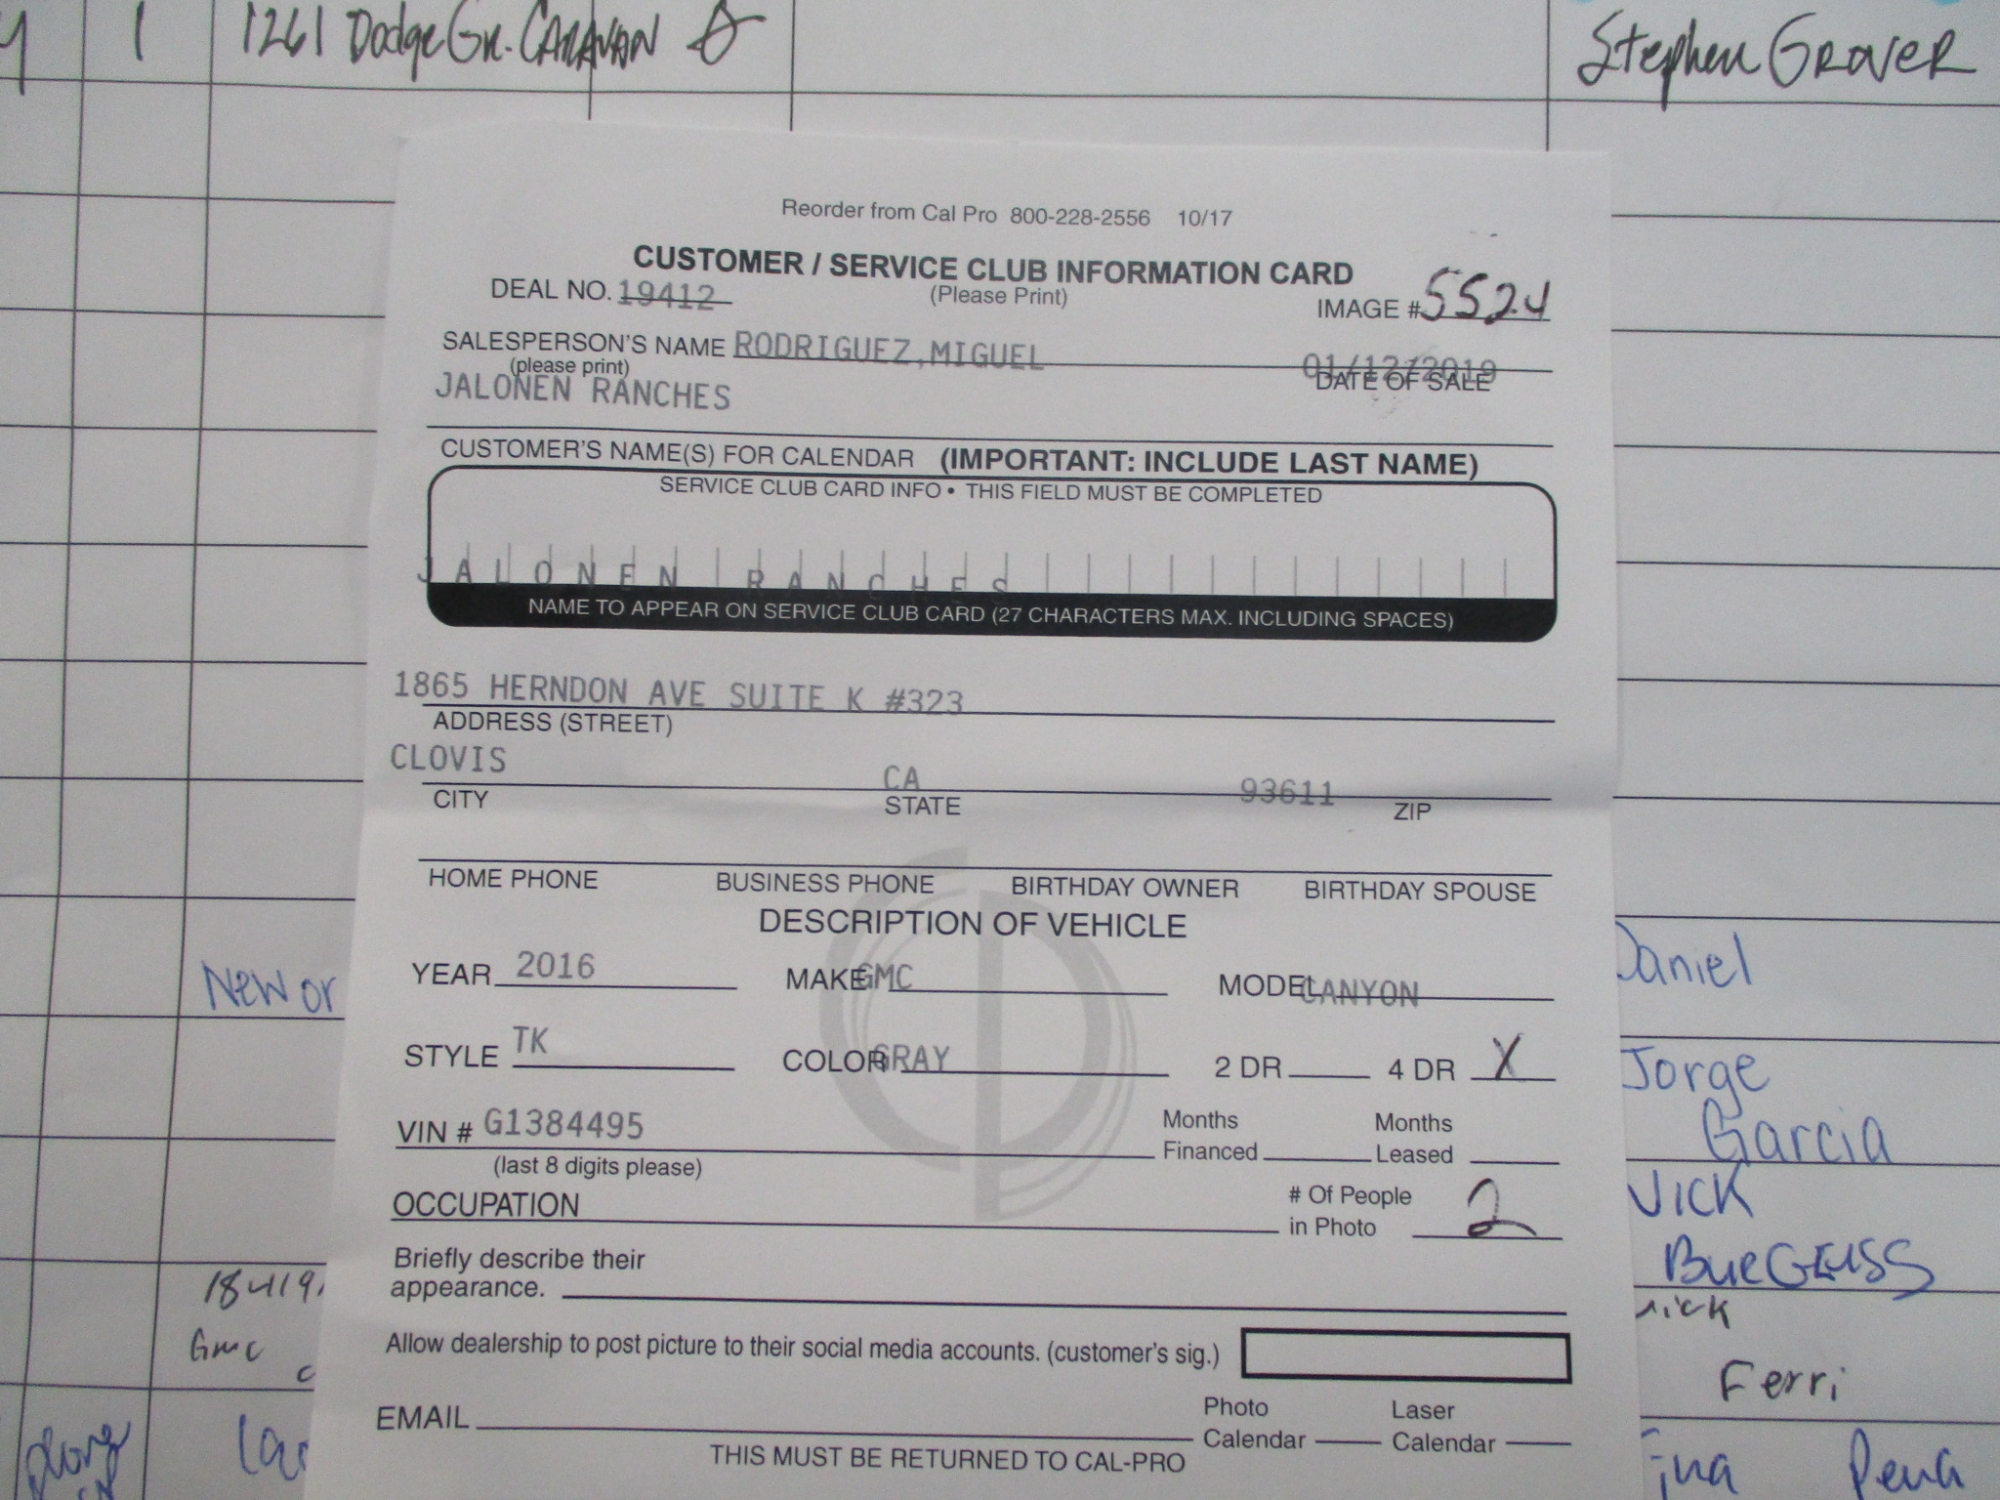 1 1261 Dodge Gr. CARAVAN Stephen GROVER
Reorder from Cal Pro 800-228-2556 10/17
CUSTOMER / SERVICE CLUB INFORMATION CARD
DEAL NO. 19412 (Please Print) IMAGE # 5524
SALESPERSON'S NAME RODRIGUEZ,MIGUEL 01/12/2019
(please print) DATE OF SALE
JALONEN RANCHES
CUSTOMER'S NAME(S) FOR CALENDAR (IMPORTANT: INCLUDE LAST NAME)
SERVICE CLUB CARD INFO • THIS FIELD MUST BE COMPLETED
JALONEN RANCHES
NAME TO APPEAR ON SERVICE CLUB CARD (27 CHARACTERS MAX. INCLUDING SPACES)
1865 HERNDON AVE SUITE K #323
ADDRESS (STREET)
CLOVIS CA 93611
CITY STATE ZIP
HOME PHONE BUSINESS PHONE BIRTHDAY OWNER BIRTHDAY SPOUSE
DESCRIPTION OF VEHICLE
New or Daniel
YEAR 2016 MAKE GMC MODEL CANYON
STYLE TK COLOR GRAY 2 DR 4 DR X
Jorge
Garcia
VIN # G1384495 Months Financed Months Leased
(last 8 digits please)
OCCUPATION # Of People in Photo 2
VICK
BurGEISS
Briefly describe their
appearance.
18419
Gmc
Ferri
Allow dealership to post picture to their social media accounts. (customer's sig.)
EMAIL Photo Calendar Laser Calendar
THIS MUST BE RETURNED TO CAL-PRO
Pena